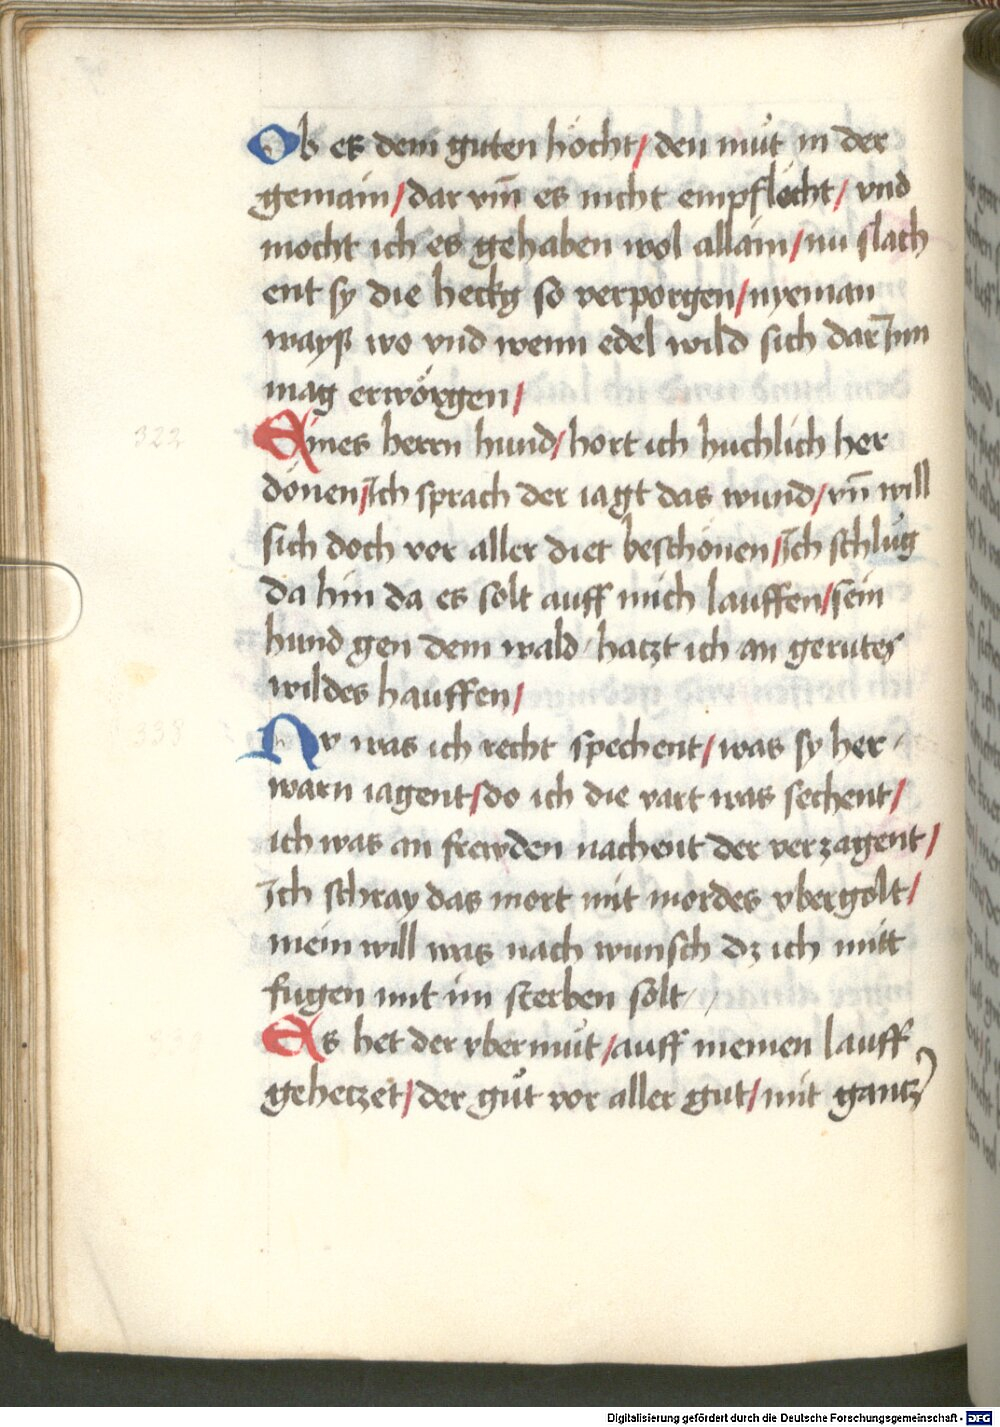 Ob es dem guten höcht / den můt in der
gemain / dar vm̄ es nicht empflicht / vnd
mocht ich es gehaben wol allain / nu slach
ent sy die heckg so verporgen / nyeman
wayß wo vnd wenn edel wild sich dar Inn
mag erwörgen /
322
Eines herrn hund / hort ich huchlich her
dönen / Ich sprach der iagt das wund / vn̄ will
sich doch vor aller diet beschönen / Ich schlůg
da hin da es solt auff mich lauffen / sein
hund gen dem wald hatzt ich an gerutes
wildes hauffen /
338
Nv was ich recht spechent / was sy her
warn iagent / do ich die vart was sechent /
ich was an frewden nachent der verzagent /
Ich schray das mort mit mordes vbergolt /
mein will was nach wunsch dz ich mitt
fugen mit im sterben solt
Es het der vbermůt / auff meinen lauff
gehetzet / der gůt vor aller gut / mit gantz
Digitalisierung gefördert durch die Deutsche Forschungsgemeinschaft - DFG